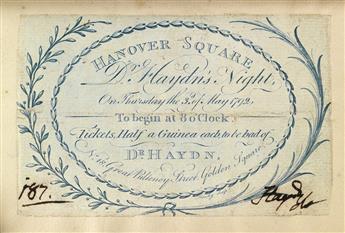 HANOVER SQUARE
Dr. Haydn's Night,
On Thursday the 3d. of May 1792
To begin at 8 o'Clock
Tickets, Half a Guinea each to be had of
Dr HAYDN,
No. 18, Great Pulteney Street, Golden Square
187.
Haydn